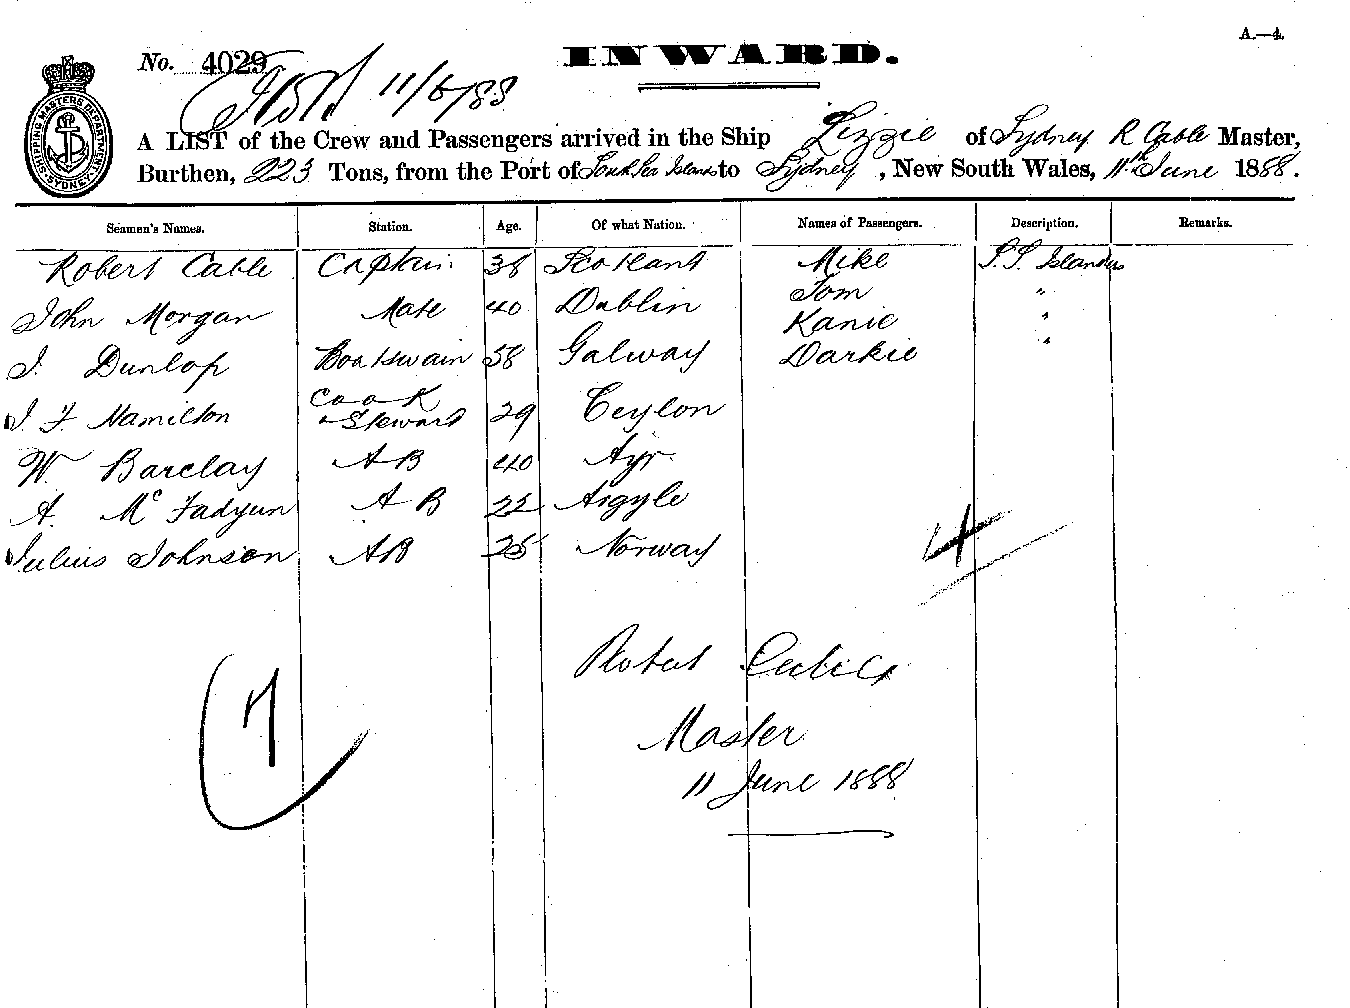 A.—4.
INWARD.
No. 4029
11/6/88
SHIPPING MASTERS DEPARTMENT SYDNEY
A LIST of the Crew and Passengers arrived in the Ship Lizzie of Sydney R Cable Master,
Burthen, 223 Tons, from the Port of South Sea Islands to Sydney, New South Wales, 11th June 1888.
Seamen's Names. Station. Age. Of what Nation. Names of Passengers. Description. Remarks.
Robert Cable Captain 38 Scotland Mike S.S. Islanders
John Morgan Mate 40 Dublin Tom "
J. Dunlop Boatswain 58 Galway Kanie "
Darkie "
J. F. Hamilton Cook & Steward 29 Ceylon
W. Barclay AB 40 Ayr.
A. McFadyen AB 22 Argyle
Julius Johnson AB 25 Norway
4
Robert Cable
7
Master
11 June 1888